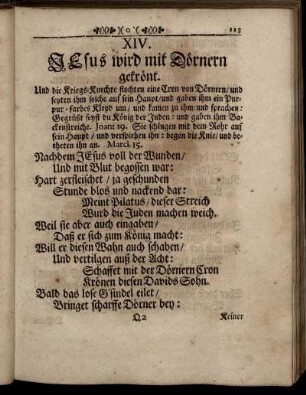 223
XIV.
JEsus wird mit Dörnern
gekrönt.
Und die Kriegs-Knechte flochten eine Cron von Dörnern/ und
setzten ihm solche auf sein Haupt/ und gaben ihm ein Pur-
pur-farbes Kleyd um/ und knieten zu ihm und sprachen:
Gegrüßt seyst du König der Juden: und gaben ihm Ba-
ckenstreiche. Joann. 19. Sie schlugen mit dem Rohr auf
sein Haupt / und verspieben ihn : bogen die Knie/ und be-
theten ihn an. Marci. 15.
Nachdem JEsus voll der Wunden/
Und mit Blut begossen war:
Hart zerfleischet / ja geschunden
Stunde blos und nackend dar:
Meint Pilatus/ dieser Streich
Wurd die Juden machen weich.
Weil sie aber auch eingaben/
Daß er sich zum König macht:
Will er diesen Wahn auch schaben/
Und vertilgen auß der Acht:
Schaffet mit der Dörnern Cron
Krönen diesen Davids Sohn.
Bald das lose Gsindel eilet/
Bringet scharffe Dörner bey:
Q2 Keiner